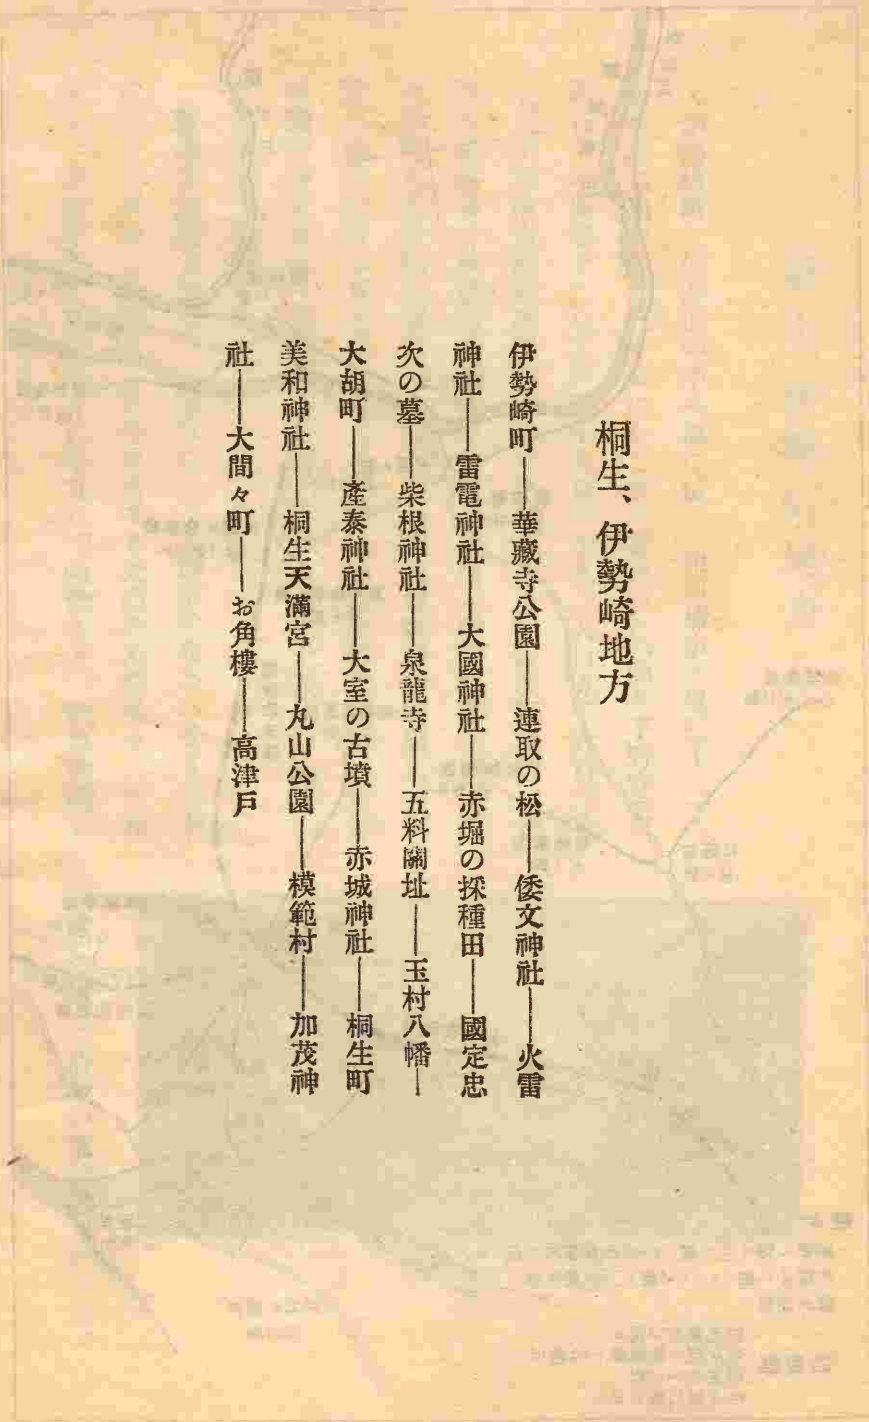 桐生、伊勢崎地方
伊勢崎町――華藏寺公園――連取の松――倭文神社――火雷
神社――雷電神社――大國神社――赤堀の採種田――國定忠
次の墓――柴根神社――泉龍寺――五料關址――玉村八幡―
大胡町――產泰神社――大室の古墳――赤城神社――桐生町
美和神社――桐生天滿宮――丸山公園――模範村――加茂神
社――大間々町――お角樓――高津戶